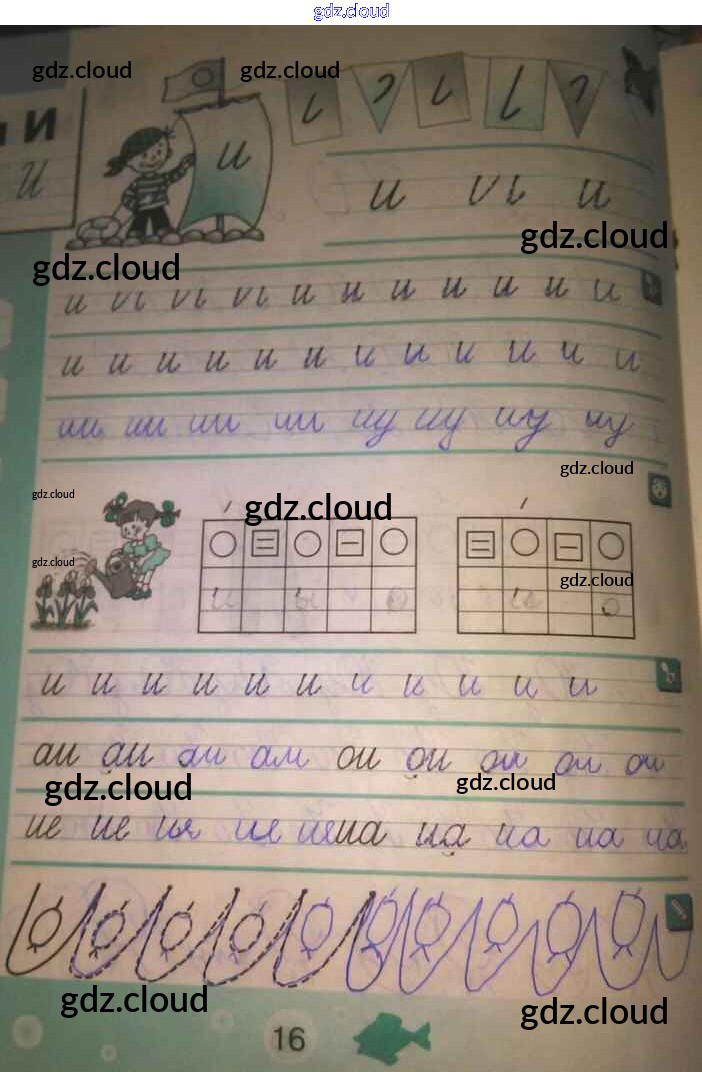 gdz.cloud
gdz.cloud gdz.cloud
и И
И
и
и и и
gdz.cloud
gdz.cloud
и и и и и и и и и и и
и и и и и и и и и и и и
ии ии ии ии иу иу иу иу
gdz.cloud
gdz.cloud
gdz.cloud
gdz.cloud
gdz.cloud
и ы о и о
и и и и и и и и и и и
аи аи аи аи ои ои ои ои ои
gdz.cloud
gdz.cloud
ие ие ие ие ие иа иа иа иа иа
gdz.cloud
gdz.cloud
16